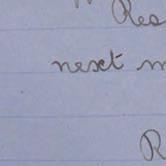 Rea
next m
R